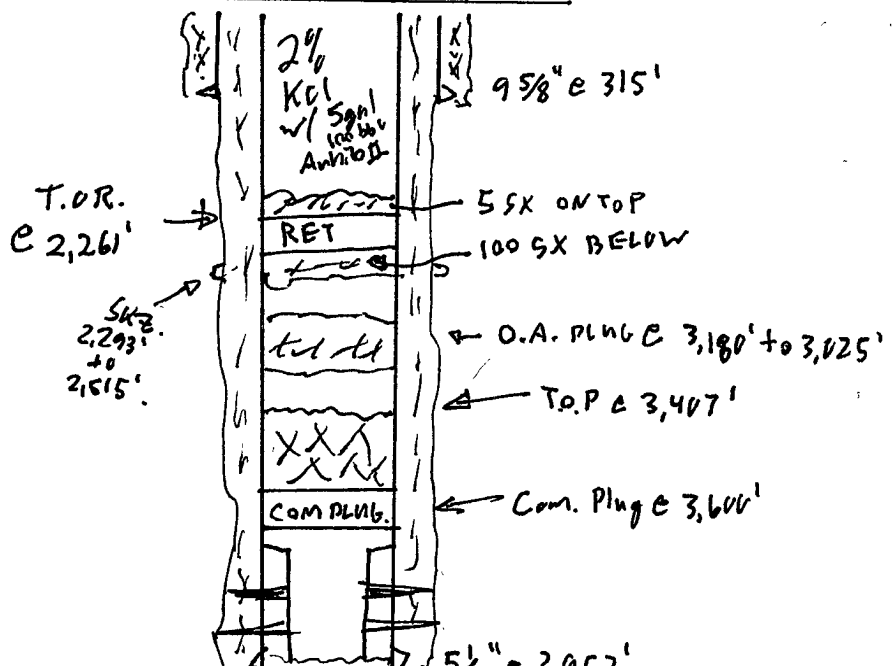 2%
KCl
w/ 5gal
100 bbl
Anhib II
9 5/8" @ 315'
T.O.R.
@ 2,261'
5 SX ON TOP
RET
100 SX BELOW
SKZ
2,293'
to
2,515'
O.A. PLUG @ 3,180' to 3,025'
T.O.P @ 3,407'
COM PLUG.
Com. Plug @ 3,600'